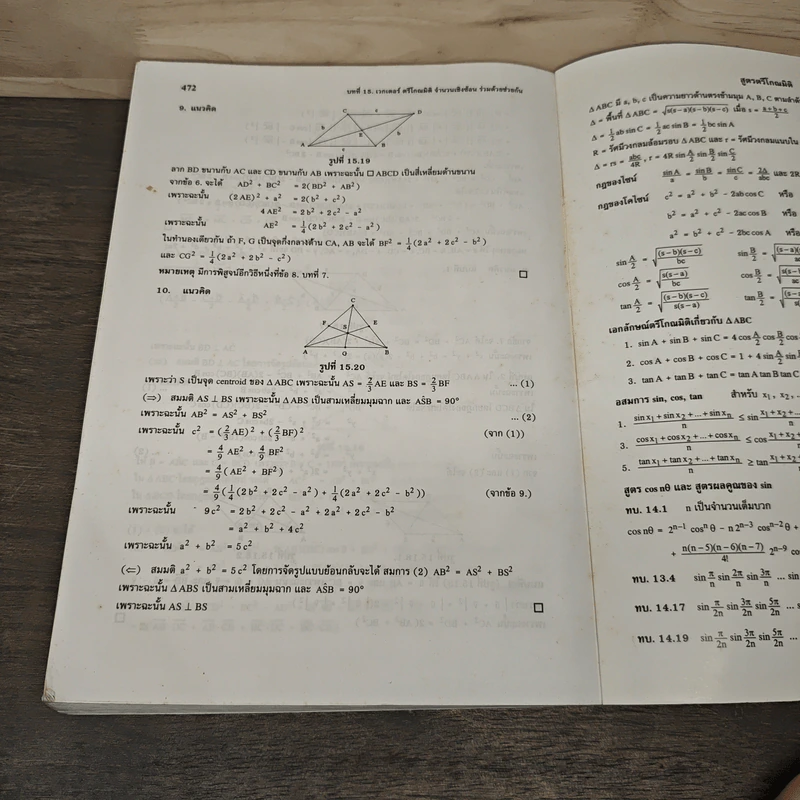 472
บทที่ 15. เวกเตอร์ ตรีโกณมิติ จำนวนเชิงซ้อน ร่วมด้วยช่วยกัน
9. แนวคิด
C c D
b a b
E
A c B
รูปที่ 15.19
ลาก BD ขนานกับ AC และ CD ขนานกับ AB เพราะฉะนั้น □ ABCD เป็นสี่เหลี่ยมด้านขนาน
จากข้อ 6. จะได้ AD² + BC² = 2(BD² + AB²)
เพราะฉะนั้น (2AE)² + a² = 2(b² + c²)
4AE² = 2b² + 2c² − a²
เพราะฉะนั้น AE² = 1/4(2b² + 2c² − a²)
ในทำนองเดียวกัน ถ้า F, G เป็นจุดกึ่งกลางด้าน CA, AB จะได้ BF² = 1/4(2a² + 2c² − b²)
และ CG² = 1/4(2a² + 2b² − c²)
หมายเหตุ มีการพิสูจน์อีกวิธีหนึ่งที่ข้อ 8. บทที่ 7. □
10. แนวคิด
C
F S E
A G B
รูปที่ 15.20
เพราะว่า S เป็นจุด centroid ของ ΔABC เพราะฉะนั้น AS = 2/3 AE และ BS = 2/3 BF ... (1)
(⇒) สมมติ AS ⊥ BS เพราะฉะนั้น ΔABS เป็นสามเหลี่ยมมุมฉาก และ AŜB = 90°
เพราะฉะนั้น AB² = AS² + BS² ... (2)
เพราะฉะนั้น c² = (2/3 AE)² + (2/3 BF)² (จาก (1))
= 4/9 AE² + 4/9 BF²
= 4/9(AE² + BF²)
= 4/9(1/4(2b² + 2c² − a²) + 1/4(2a² + 2c² − b²)) (จากข้อ 9.)
เพราะฉะนั้น 9c² = 2b² + 2c² − a² + 2a² + 2c² − b²
= a² + b² + 4c²
เพราะฉะนั้น a² + b² = 5c²
(⇐) สมมติ a² + b² = 5c² โดยการจัดรูปแบบย้อนกลับจะได้ สมการ (2) AB² = AS² + BS²
เพราะฉะนั้น ΔABS เป็นสามเหลี่ยมมุมฉาก และ AŜB = 90°
เพราะฉะนั้น AS ⊥ BS □
สูตรตรีโกณมิติ
ΔABC มี a, b, c เป็นความยาวด้านตรงข้ามมุม A, B, C
Δ = พื้นที่ ΔABC = √(s(s−a)(s−b)(s−c)) เมื่อ s = (a+b+c)/2
Δ = 1/2 ab sin C = 1/2 ac sin B = 1/2 bc sin A
R = รัศมีวงกลมล้อมรอบ ΔABC และ r = รัศมีวงกลมแนบใน
Δ = rs = abc/4R , r = 4R sin A/2 sin B/2 sin C/2
กฎของไซน์ sin A/a = sin B/b = sin C/c = 2Δ/abc และ 2R
กฎของโคไซน์ c² = a² + b² − 2ab cos C หรือ
b² = a² + c² − 2ac cos B หรือ
a² = b² + c² − 2bc cos A หรือ
sin A/2 = √((s−b)(s−c)/bc) sin B/2 =
cos A/2 = √(s(s−a)/bc) cos B/2 =
tan A/2 = √((s−b)(s−c)/s(s−a)) tan B/2 =
เอกลักษณ์ตรีโกณมิติเกี่ยวกับ ΔABC
1. sin A + sin B + sin C = 4 cos A/2 cos B/2 cos
2. cos A + cos B + cos C = 1 + 4 sin A/2 sin
3. tan A + tan B + tan C = tan A tan B tan C
อสมการ sin, cos, tan สำหรับ x₁, x₂,
1. (sin x₁ + sin x₂ + ... + sin xₙ)/n ≤ sin (x₁ + x₂ +
3. (cos x₁ + cos x₂ + ... + cos xₙ)/n ≤ cos (x₁ +
5. (tan x₁ + tan x₂ + ... + tan xₙ)/n ≥ tan (x₁ + x₂
สูตร cos nθ และ สูตรผลคูณของ sin
ทบ. 14.1 n เป็นจำนวนเต็มบวก
cos nθ = 2ⁿ⁻¹ cosⁿ θ − n 2ⁿ⁻³ cosⁿ⁻² θ +
+ n(n−5)(n−6)(n−7)/4! 2ⁿ⁻⁹ cos
ทบ. 13.4 sin π/n sin 2π/n sin 3π/n ... sin
ทบ. 14.17 sin π/2n sin 3π/2n sin 5π/2n ...
ทบ. 14.19 sin π/2n sin 3π/2n sin 5π/2n ...